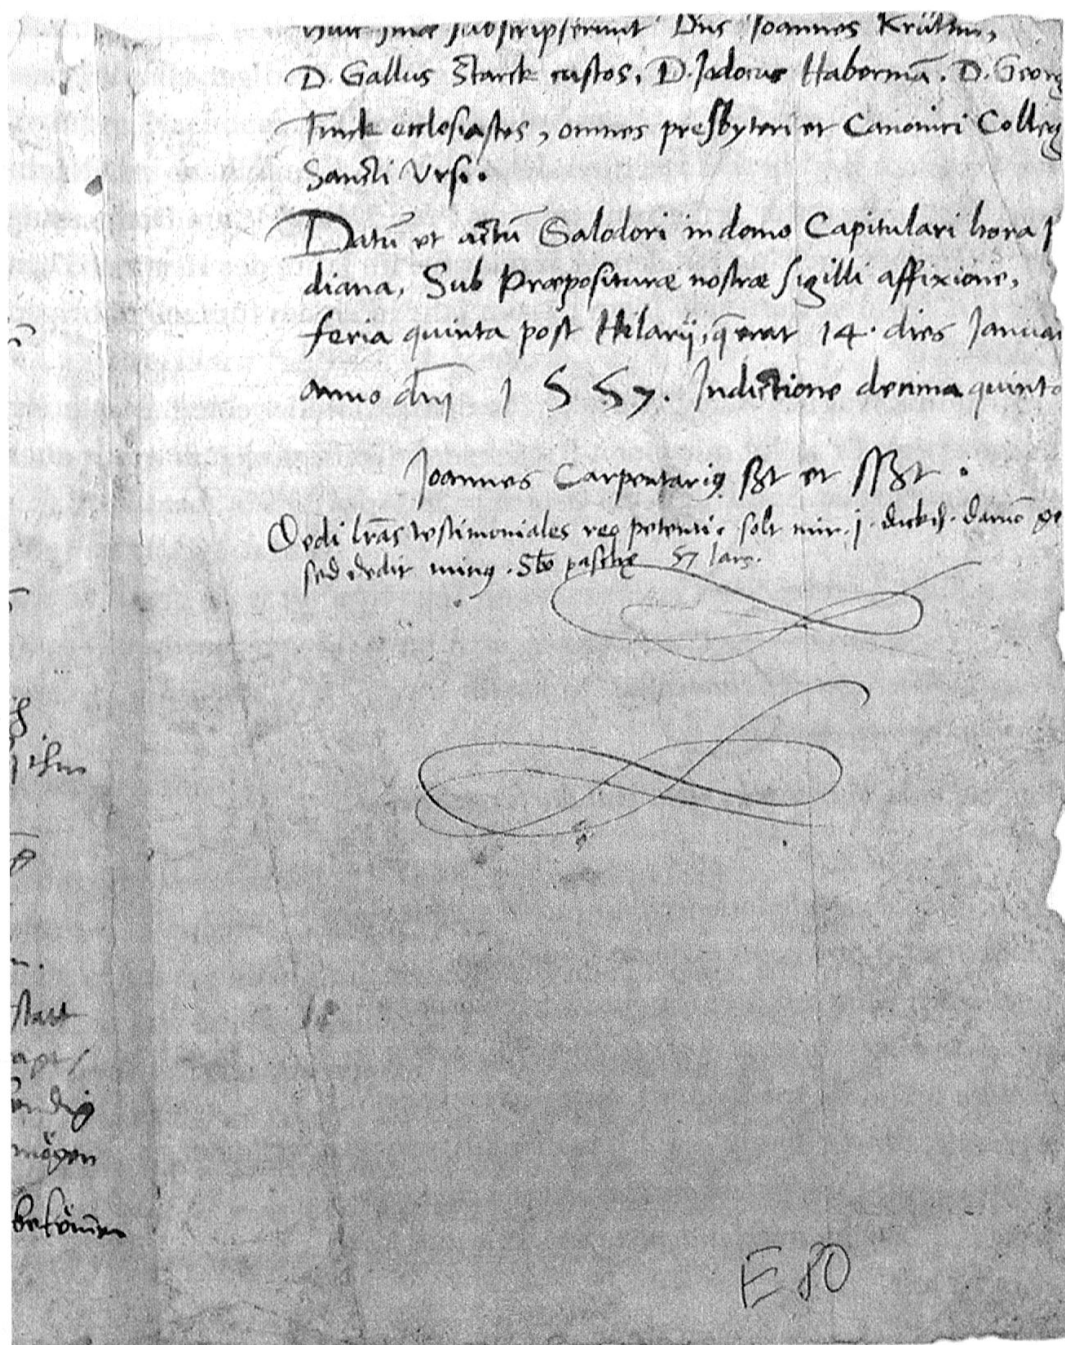 subscripserunt Dns Joannes Krüttin,
D. Gallus Starck custos, D. Jodocus Habermā. D. Georg
Finck ecclesiastes, omnes presbyteri et Canonici Colleg
Sancti Ursi.
Datū et actū Salodori in domo Capitulari hora
diana, Sub Præposituræ nostræ sigilli affixione,
feria quinta post Hilarij, q̄ erat 14. dies Januar
anno dnj 1557. Indictione decima quinto
Joannes Carpentariꝯ sßt et ssßt.
Dedi lr̄as testimoniales petenti. solt mir. j. dick
sed dedit minꝯ. Sbō paschę 57 Jars.
statt
mögen
bekom̄en
E 80